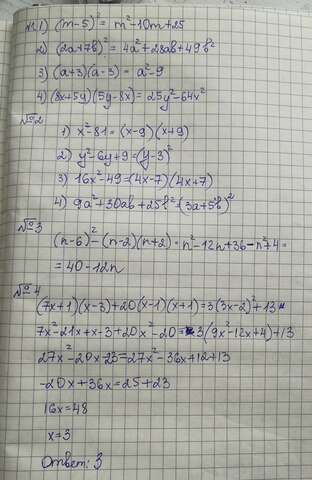 №1. 1) (m-5)² = m²-10m+25
2) (2a+7b)² = 4a²+28ab+49b²
3) (a+3)(a-3) = a²-9
4) (8x+5y)(5y-8x)=25y²-64x²
№2
1) x²-81=(x-9)(x+9)
2) y²-6y+9=(y-3)²
3) 16x²-49=(4x-7)(4x+7)
4) 9a²+30ab+25b²=(3a+5b)²
№3
(n-6)²-(n-2)(n+2)=n²-12n+36-n²+4=
=40-12n
№4
(7x+1)(x-3)+20(x-1)(x+1)=3(3x-2)²+13
7x²-21x+x-3+20x²-20=3(9x²-12x+4)+13
27x²-20x-23=27x²-36x+12+13
-20x+36x=25+23
16x=48
x=3
Ответ: 3